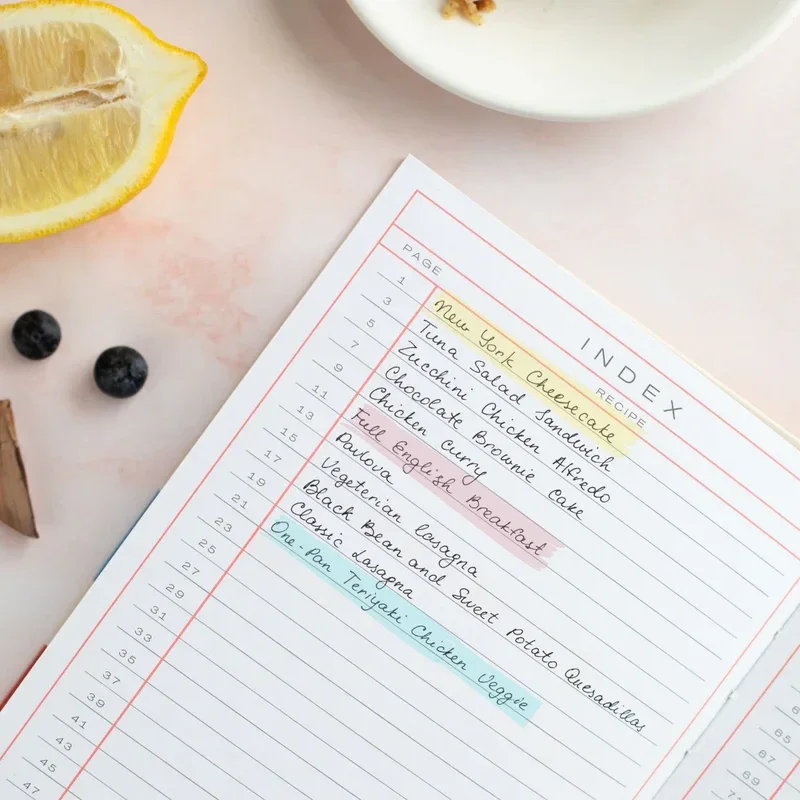 INDEX
PAGE RECIPE
1 New York Cheesecake
3 Tuna Salad Sandwich
5 Zucchini Chicken Alfredo
7 Chocolate Brownie Cake
9 Chicken Curry
11 Full English Breakfast
13 Pavlova
15 Vegeterian Lasagna
17 Black Bean and Sweet Potato Quesadillas
19 Classic Lasagna
21 One-Pan Teriyaki Chicken Veggie
23
25
27
29
31
33
35
37
39
41
43
45
47
65
67
69